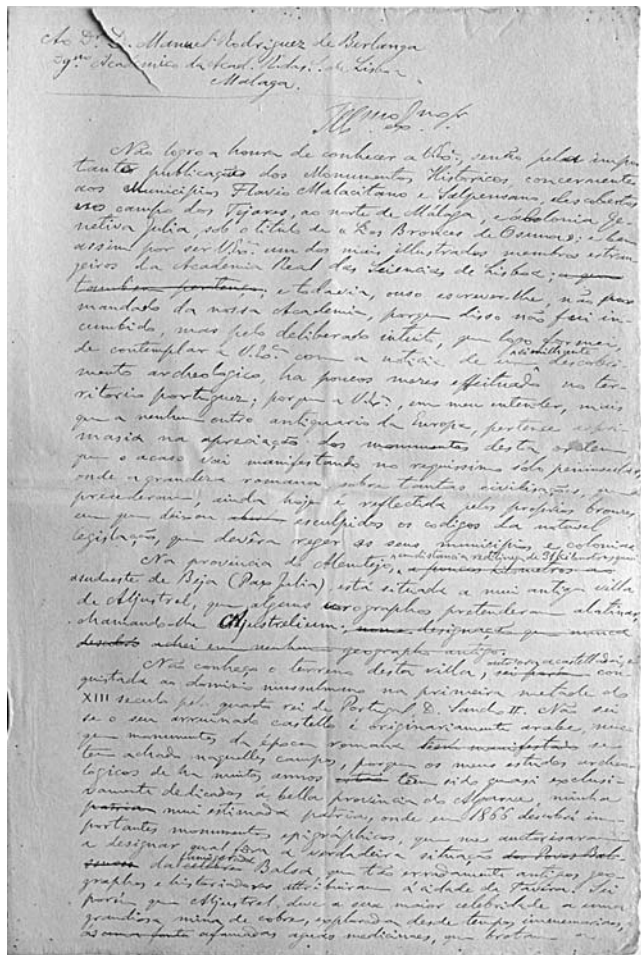 Ao Dr. D. Manuel Rodriguez de Berlanga
Academico da Acad. R. das Sc. de Lisboa
Malaga.
Não logro a honra de conhecer a V. Exª., senão pelas impor
tantes publicações dos Monumentos Historicos, concernentes
aos Municipios Flavio Malacitano e Salpensano, descobertos
no campo dos Tejares, ao norte de Málaga, e a colonia Ge
netiva Julia, sob o titulo de « Los Bronces de Osuna»; e bem
assim por ser V. Exª. um dos mais illustrados membros extran
geiros da Academia Real das Sciencias de Lisboa;
e todavia, ouso escrever-lhe, não por
mandado da nossa Academia, porque disso não fui in
cumbido, mas pelo deliberado intuito, que logo formei,
de contemplar a V. Exª. com a noticia de um descobri
mento archeologico, ha poucos mezes effeituado no ter
ritorio portuguez; porque a V. Exª., em meu entender, mais
que a nenhum outro antiquario da Europa, pertence a pri
masia na apreciação dos monumentos desta ordem
que o acaso vai manifestando no riquissimo solo peninsular,
onde a grandeza romana, sobre tantas civilisações, que
precederam, ainda hoje é reflectida pelos proprios bronzes,
em que deixou esculpidos os codigos da
legislação, que devêra reger os seus municipios e colonias
Na provincia do Alemtejo, a poucos kilometros ao
sudueste de Beja (Pax Julia) está situada a mui antiga villa
de Aljustrel, que alguns corographos pretenderam alatinar,
chamando-lhe Aljustrelium, designação que nunca
achei em nenhum geographo antigo.
Não conheço o terreno desta villa, con
quistada ao dominio mussulmano na primeira metade do
XIII seculo pelo quarto rei de Portugal D. Sancho II. Não sei
se o seu arruinado castello é originariamente arabe, nem
que monumentos da época romana se
tem achado naquelles campos, porque os meus estudos archeo
lógicos de ha muitos annos tem sido quasi exclusi
vamente dedicados á bella provincia do Algarve, minha
mui estimada patria, onde em 1866 descobri im
portantes monumentos epigráphicos, que me auctorisaram
a designar qual fôra a verdadeira situação
da Balsa, que tão erradamente antigos geo
graphos e historiadores attribuiram á cidade de Tavira. Sei
porém que Aljustrel deve a sua maior celebridade a uma
grandiosa mina de cobre, explorada desde tempos immemoriaes,
afamadas aguas medicinaes, que brotam